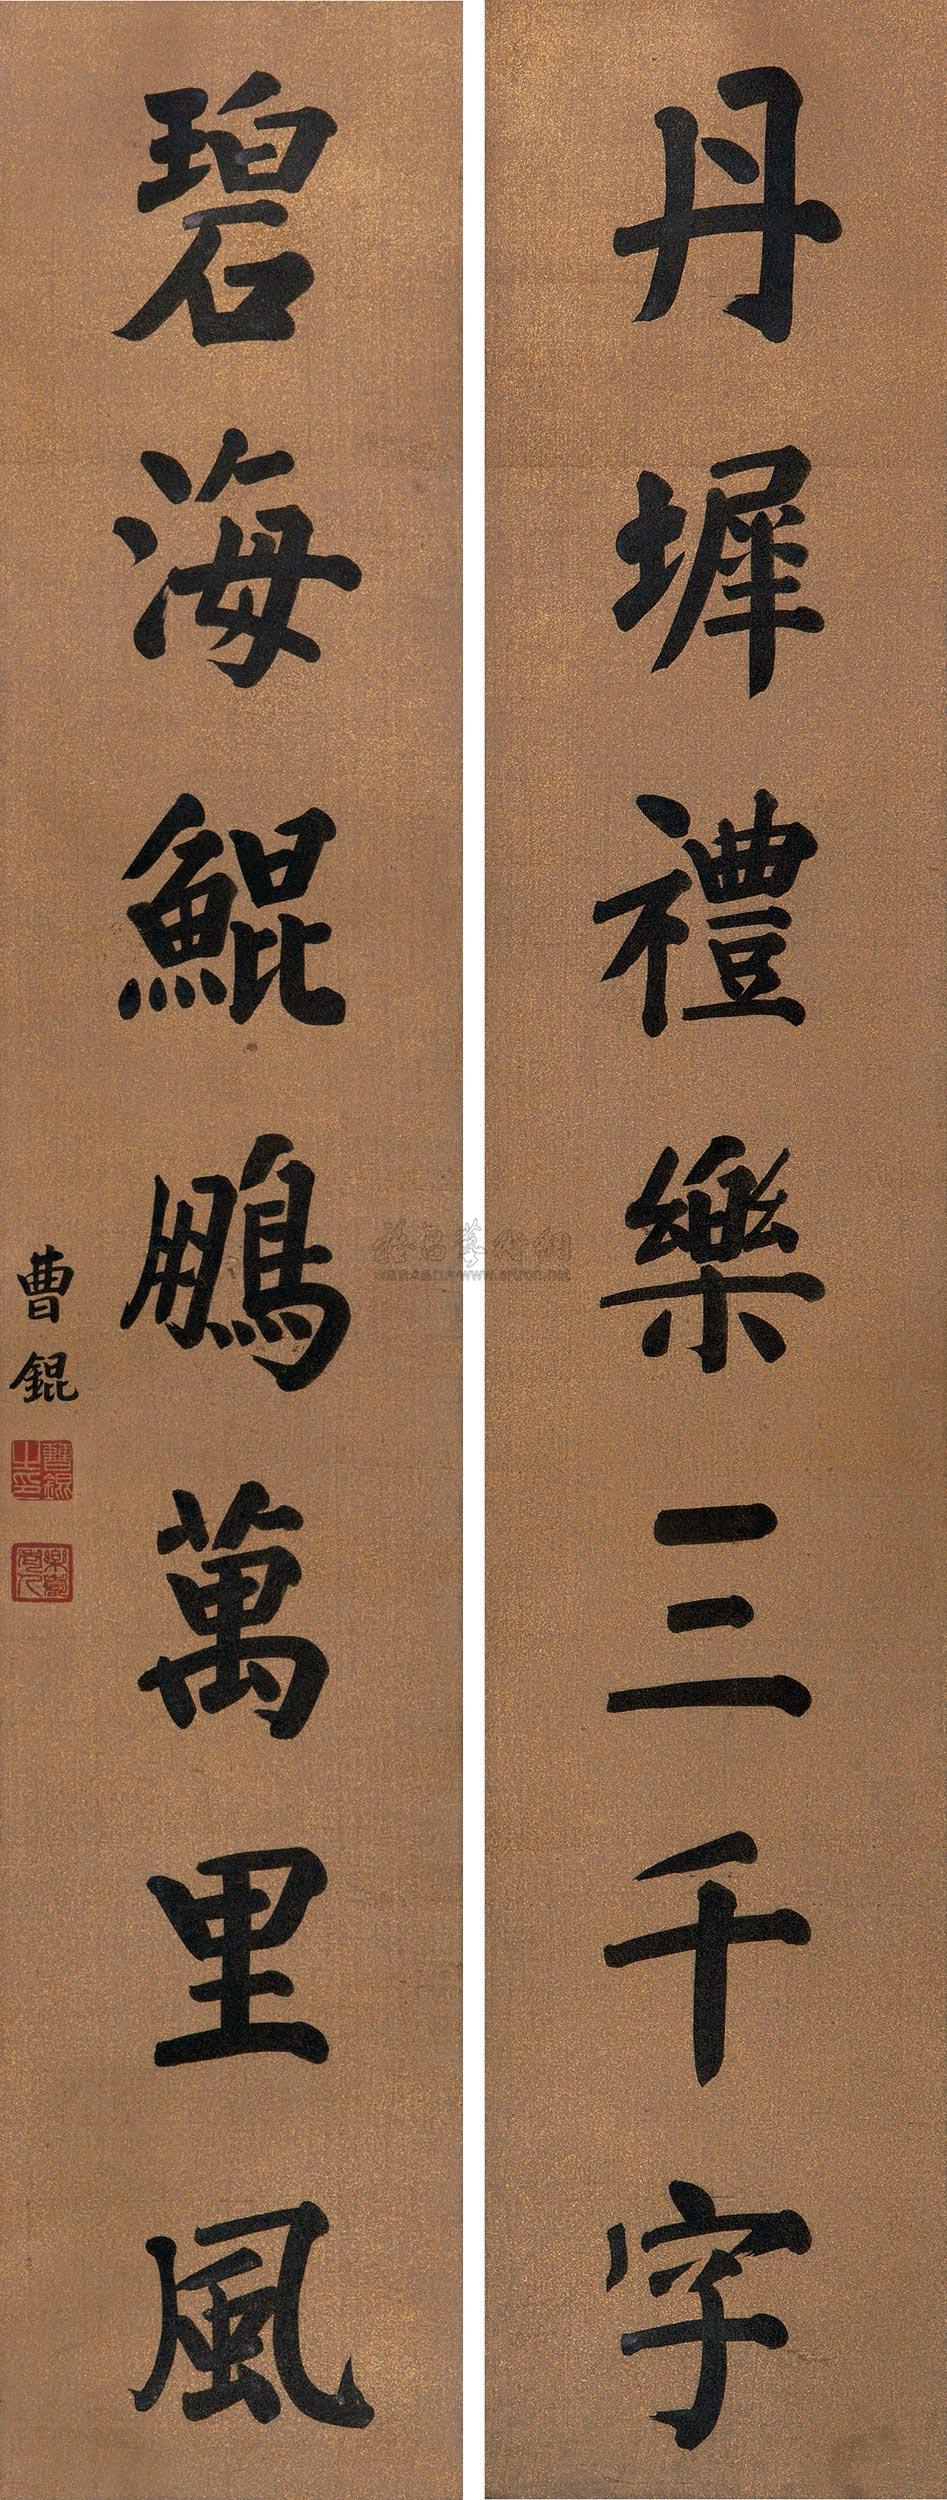 丹墀禮樂三千字
碧海鯤鵬萬里風
曹錕
曹錕之印